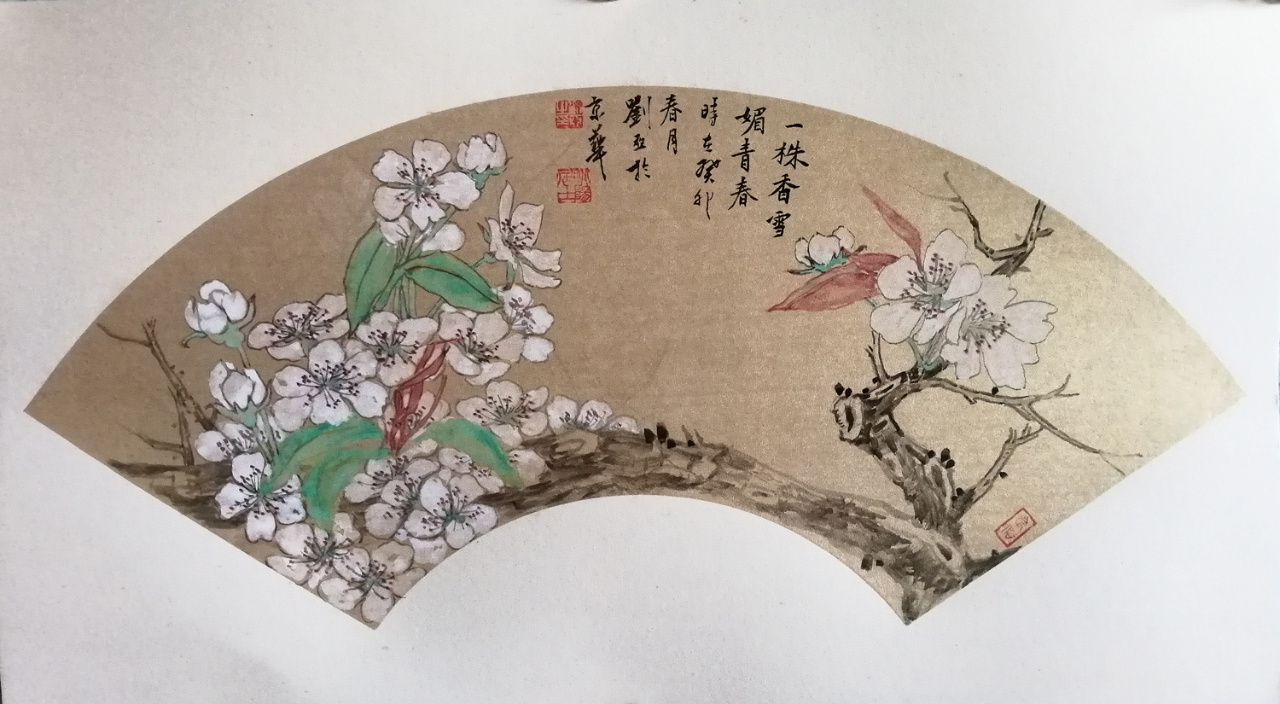 一株香雪
媚青春
時在癸卯
春月
劉亞於
京華